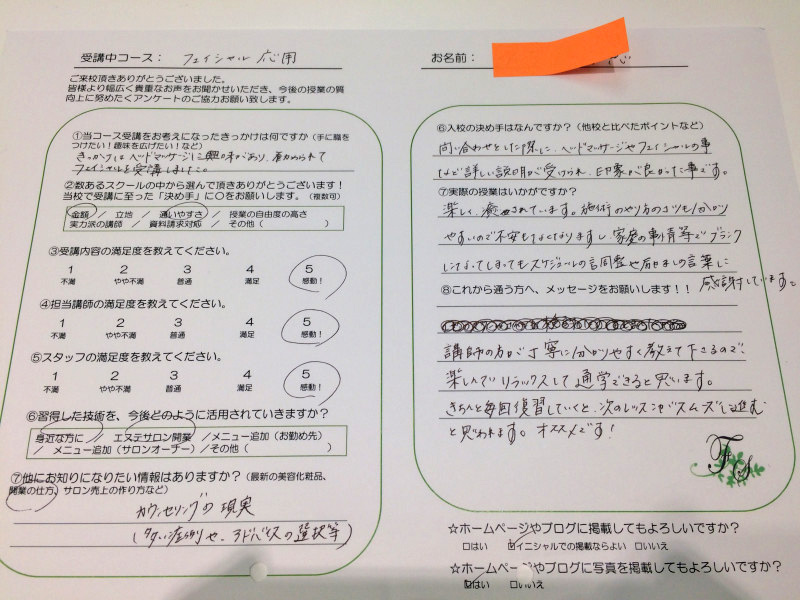 受講中コース： フェイシャル 応用
ご来校頂きありがとうございました。
皆様より幅広く貴重なお声をお聞かせいただき、今後の授業の質
向上に努めたくアンケートのご協力お願い致します。
①当コース受講をお考えになったきっかけは何ですか（手に職を
つけたい！趣味を広げたい！など）
きっかけはヘッドマッサージに興味があり、薦められて
フェイシャルを受講しました。
②数あるスクールの中から選んで頂きありがとうございます！
当校で受講に至った「決め手」に〇をお願します。（複数可）
金額 / 立地 / 通いやすさ / 授業の自由度の高さ
実力派の講師 / 資料請求対応 / その他（ ）
③受講内容の満足度を教えてください。
1 2 3 4 5
不満 やや不満 普通 満足 感動！
④担当講師の満足度を教えてください。
1 2 3 4 5
不満 やや不満 普通 満足 感動！
⑤スタッフの満足度を教えてください。
1 2 3 4 5
不満 やや不満 普通 満足 感動！
⑥習得した技術を、今後どのように活用されていきますか？
身近な方に / エステサロン開業 / メニュー追加（お勤め先）
/ メニュー追加（サロンオーナー） / その他（ ）
⑦他にお知りになりたい情報はありますか？（最新の美容化粧品、
開業の仕方、サロン売上の作り方など）
カウンセリングの現実
アドバイスの選択等）
お名前：
⑥入校の決め手はなんですか？（他校と比べたポイントなど）
問い合わせをした際に、ヘッドマッサージやフェイシャルの事
など詳しい説明が受けられ、印象が良かった事です。
⑦実際の授業はいかがですか？
楽しく、癒やされています。施術のやり方のコツも分かり
やすいので不安もなくなりますし、家庭の事情等でブランク
になってしまってもスケジュールの調整や励ましの言葉に
感謝しています。
⑧これから通う方へ、メッセージをお願いします！！
講師の方が丁寧に分かりやすく教えて下さるので、
楽しんでリラックスして通学できると思います。
きちんと毎回復習していくと、次のレッスンがスムーズに進む
と思われます。オススメです！
FS
☆ホームページやブログに掲載してもよろしいですか？
□はい ☑イニシャルでの掲載ならよい □いいえ
☆ホームページやブログに写真を掲載してもよろしいですか？
☑はい □いいえ